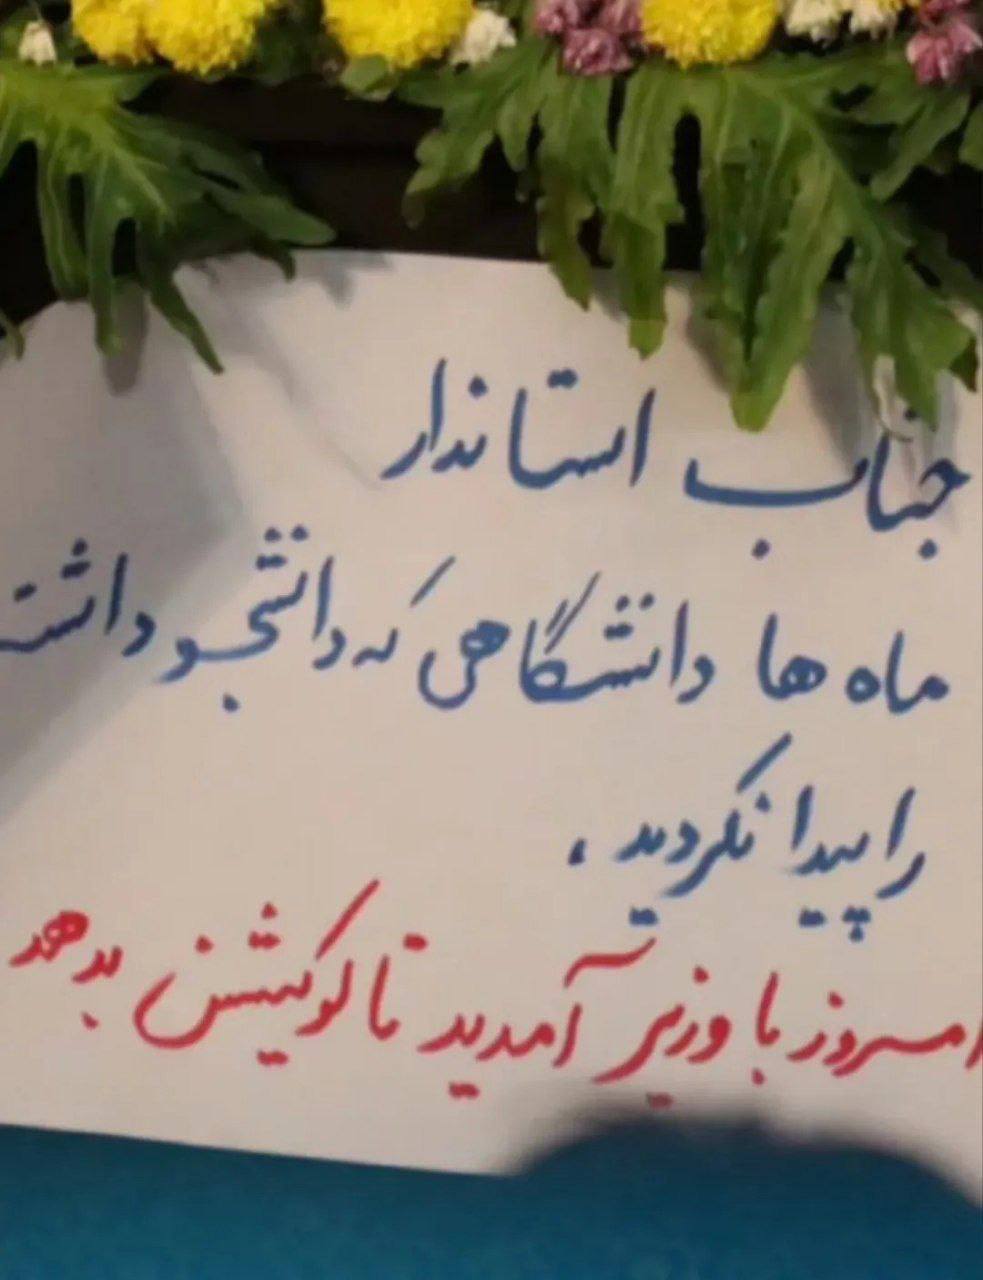 جناب استاندار
ماه ها دانشگاهی که دانشجو داشت
را پیدا نکردید،
امروز با وزیر آمدید تا لوکیشن بدهد